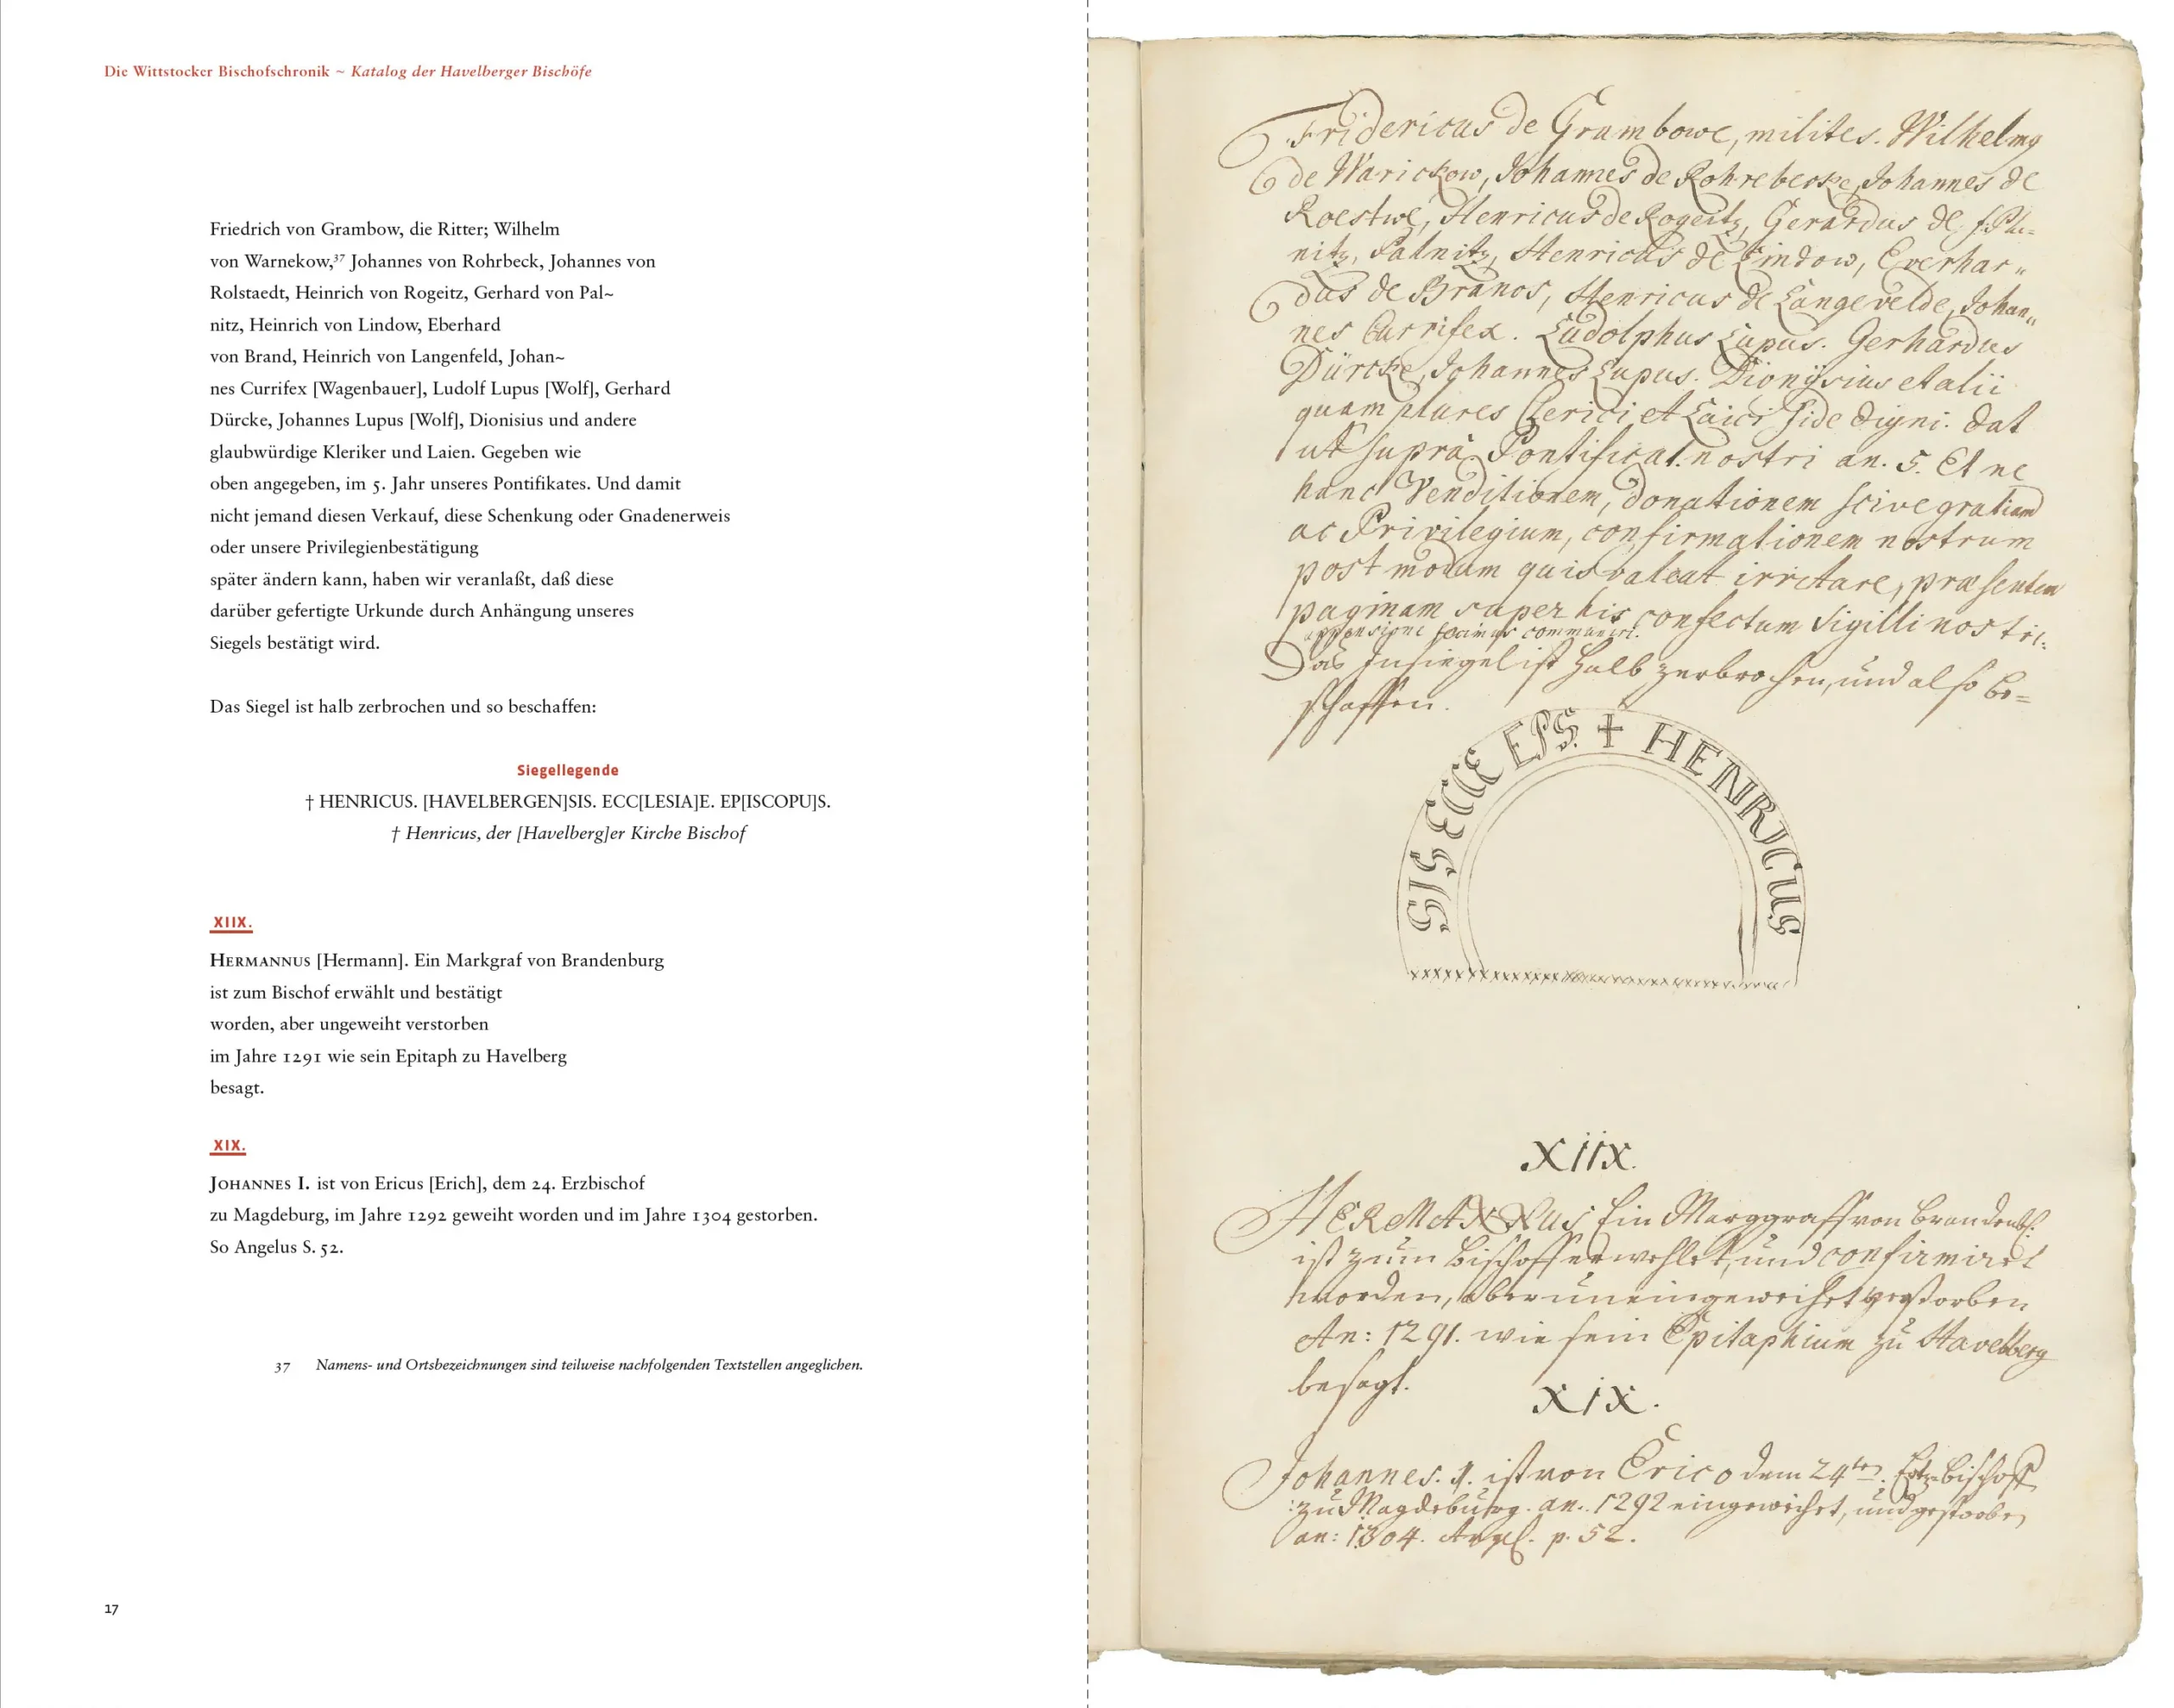 Die Wittstocker Bischofschronik ~ Katalog der Havelberger Bischöfe
Friedrich von Grambow, die Ritter; Wilhelm
von Warnekow,³⁷ Johannes von Rohrbeck, Johannes von
Rolstaedt, Heinrich von Rogeitz, Gerhard von Pal~
nitz, Heinrich von Lindow, Eberhard
von Brand, Heinrich von Langenfeld, Johan~
nes Currifex [Wagenbauer], Ludolf Lupus [Wolf], Gerhard
Dürcke, Johannes Lupus [Wolf], Dionisius und andere
glaubwürdige Kleriker und Laien. Gegeben wie
oben angegeben, im 5. Jahr unseres Pontifikates. Und damit
nicht jemand diesen Verkauf, diese Schenkung oder Gnadenerweis
oder unsere Privilegienbestätigung
später ändern kann, haben wir veranlaßt, daß diese
darüber gefertigte Urkunde durch Anhängung unseres
Siegels bestätigt wird.
Das Siegel ist halb zerbrochen und so beschaffen:
Siegellegende
† HENRICUS. [HAVELBERGEN]SIS. ECC[LESIA]E. EP[ISCOPU]S.
† Henricus, der [Havelberg]er Kirche Bischof
XIIX.
HERMANNUS [Hermann]. Ein Markgraf von Brandenburg
ist zum Bischof erwählt und bestätigt
worden, aber ungeweiht verstorben
im Jahre 1291 wie sein Epitaph zu Havelberg
besagt.
XIX.
JOHANNES I. ist von Ericus [Erich], dem 24. Erzbischof
zu Magdeburg, im Jahre 1292 geweiht worden und im Jahre 1304 gestorben.
So Angelus S. 52.
37 Namens- und Ortsbezeichnungen sind teilweise nachfolgenden Textstellen angeglichen.
17
Fridericus de Grambowe, milites. Wilhelmg
de Warickow, Johannes de Rohrebecke, Johannes de
Roestwe, Henricus de Rogeitz, Gerardus de
nitz, Palnitz, Henricus de Lindow, Everhar„
dus de Branos, Henricus de Langevelde, Johan„
nes Currifex. Ludolphus Lupus. Gerhardus
Dürcke, Johannes Lupus. Dionÿsius et alii
quam plures Clerici et Laici fide digni. Dat
ut suprà. Pontificat. nostri an. 5. Et ne
hanc Venditionem, donationem scive gratiam
ac Privilegium, confirmationem nostrum
post modum quis valeat irritare, præsentem
paginam super his confectum Sigilli nostri.
appensione fecimus communiri.
Das Insiegel ist halb zerbrochen, und also be=
schaffen.
SIS ECCE EPS. † HENRICUS
XIIX.
HERMANNUS Ein Marggraff von Brandenb.
ist zum Bischoff erwehlet, und confirmiret
worden, aber uneingeweihet verstorben
An: 1291. wie sein Epitaphium zu Havelberg
besagt.
XIX.
Johannes. I. ist von Erico dem 24ten. Ertzbischoff
zu Magdeburg. an. 1292 eingeweihet, und gestorben
an: 1304. Angel. p. 52.